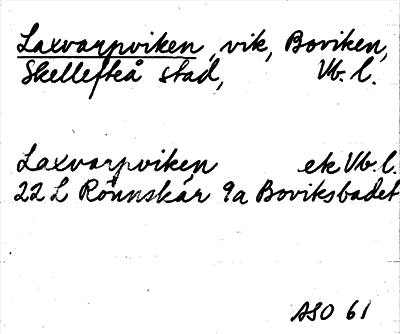 Laxvarpviken, vik, Boviken,
Skellefteå stad, Vb. l.
Laxvarpviken ek Vb. l.
22 L Rönnskär 9a Boviksbadet
ASO 61